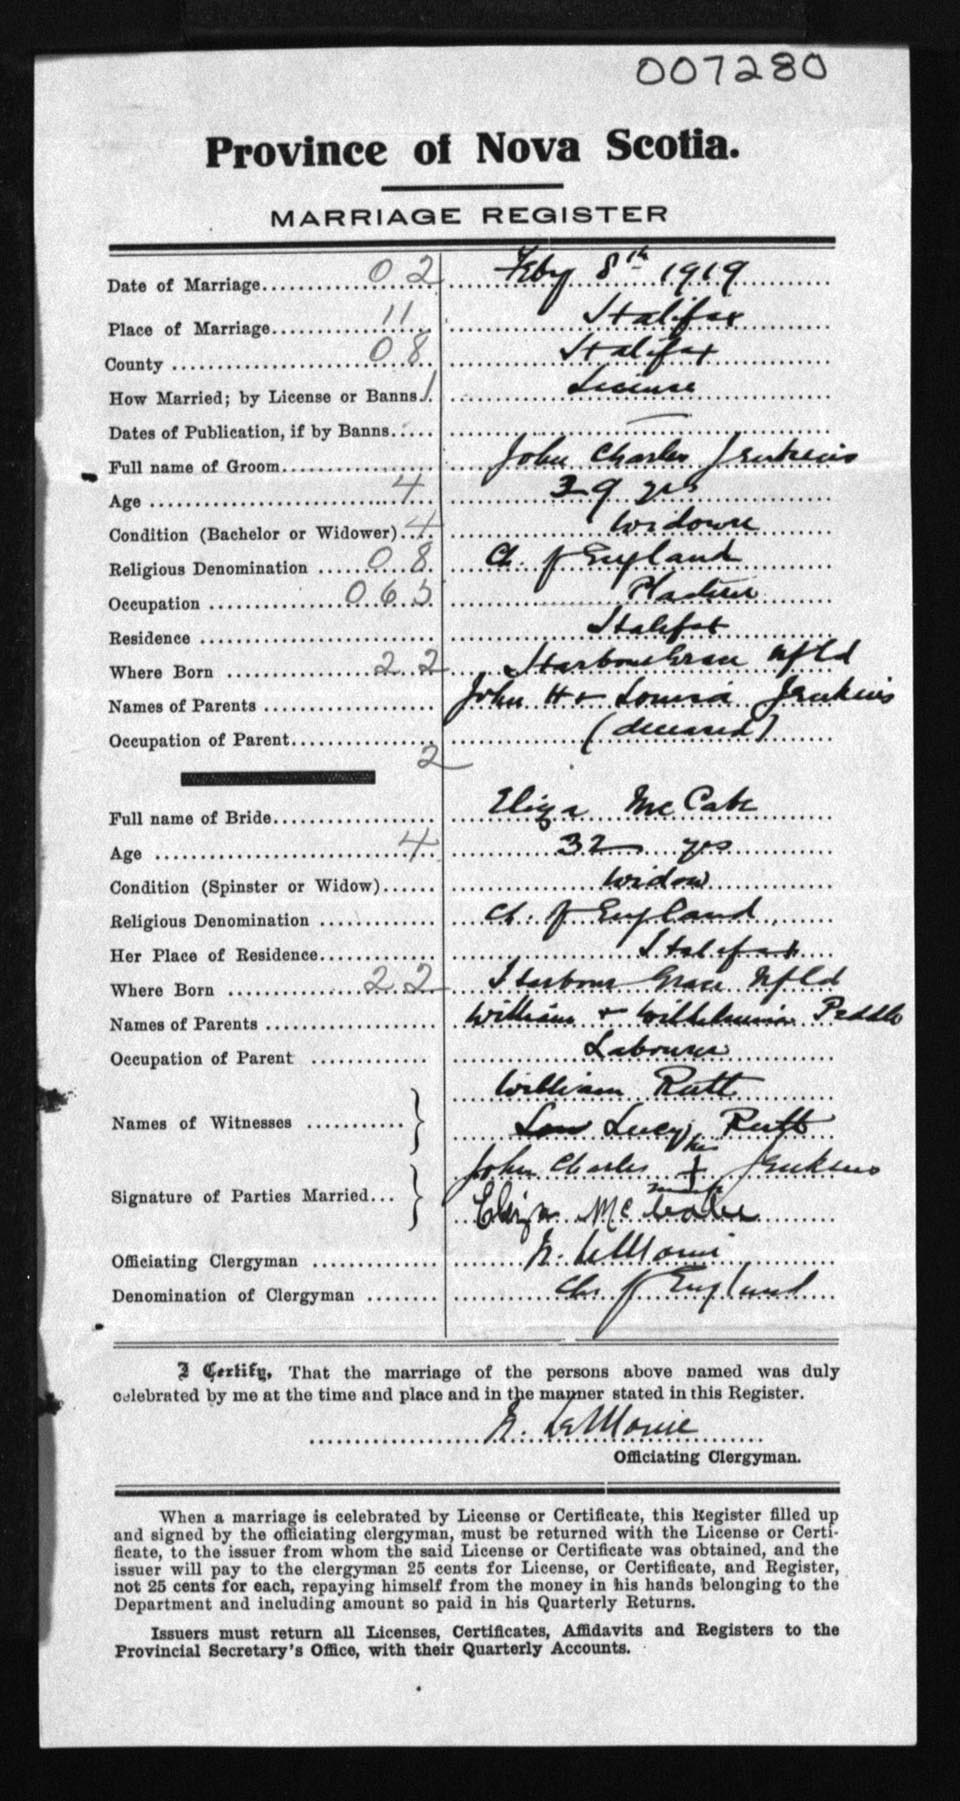 007280
Province of Nova Scotia.
MARRIAGE REGISTER
Date of Marriage 02 Feby 8th 1919
Place of Marriage 11 Halifax
County 08 Halifax
How Married; by License or Banns 1 License
Dates of Publication, if by Banns —
Full name of Groom John Charles Jenkins
Age 4 39 yrs
Condition (Bachelor or Widower) 4 Widower
Religious Denomination 08 Ch. of England
Occupation 065 Plasterer
Residence Halifax
Where Born 22 Harbour Grace Nfld
Names of Parents John H + Louisa Jenkins
Occupation of Parent (deceased)
2
Full name of Bride Eliza McCabe
Age 4 32 yrs
Condition (Spinster or Widow) Widow
Religious Denomination Ch. of England
Her Place of Residence Halifax
Where Born 22 Harbour Grace Nfld
Names of Parents William + Wilhelmina Peddle
Occupation of Parent Labourer
William Rutt
Names of Witnesses } Lucy Rutt
his
John Charles + Jenkins
mark
Signature of Parties Married } Eliza McCabe
Officiating Clergyman
Denomination of Clergyman Ch. of England
I Certify, That the marriage of the persons above named was duly
celebrated by me at the time and place and in the manner stated in this Register.
Officiating Clergyman.
When a marriage is celebrated by License or Certificate, this Register filled up
and signed by the officiating clergyman, must be returned with the License or Certi-
ficate, to the issuer from whom the said License or Certificate was obtained, and the
issuer will pay to the clergyman 25 cents for License, or Certificate, and Register,
not 25 cents for each, repaying himself from the money in his hands belonging to the
Department and including amount so paid in his Quarterly Returns.
Issuers must return all Licenses, Certificates, Affidavits and Registers to the
Provincial Secretary's Office, with their Quarterly Accounts.